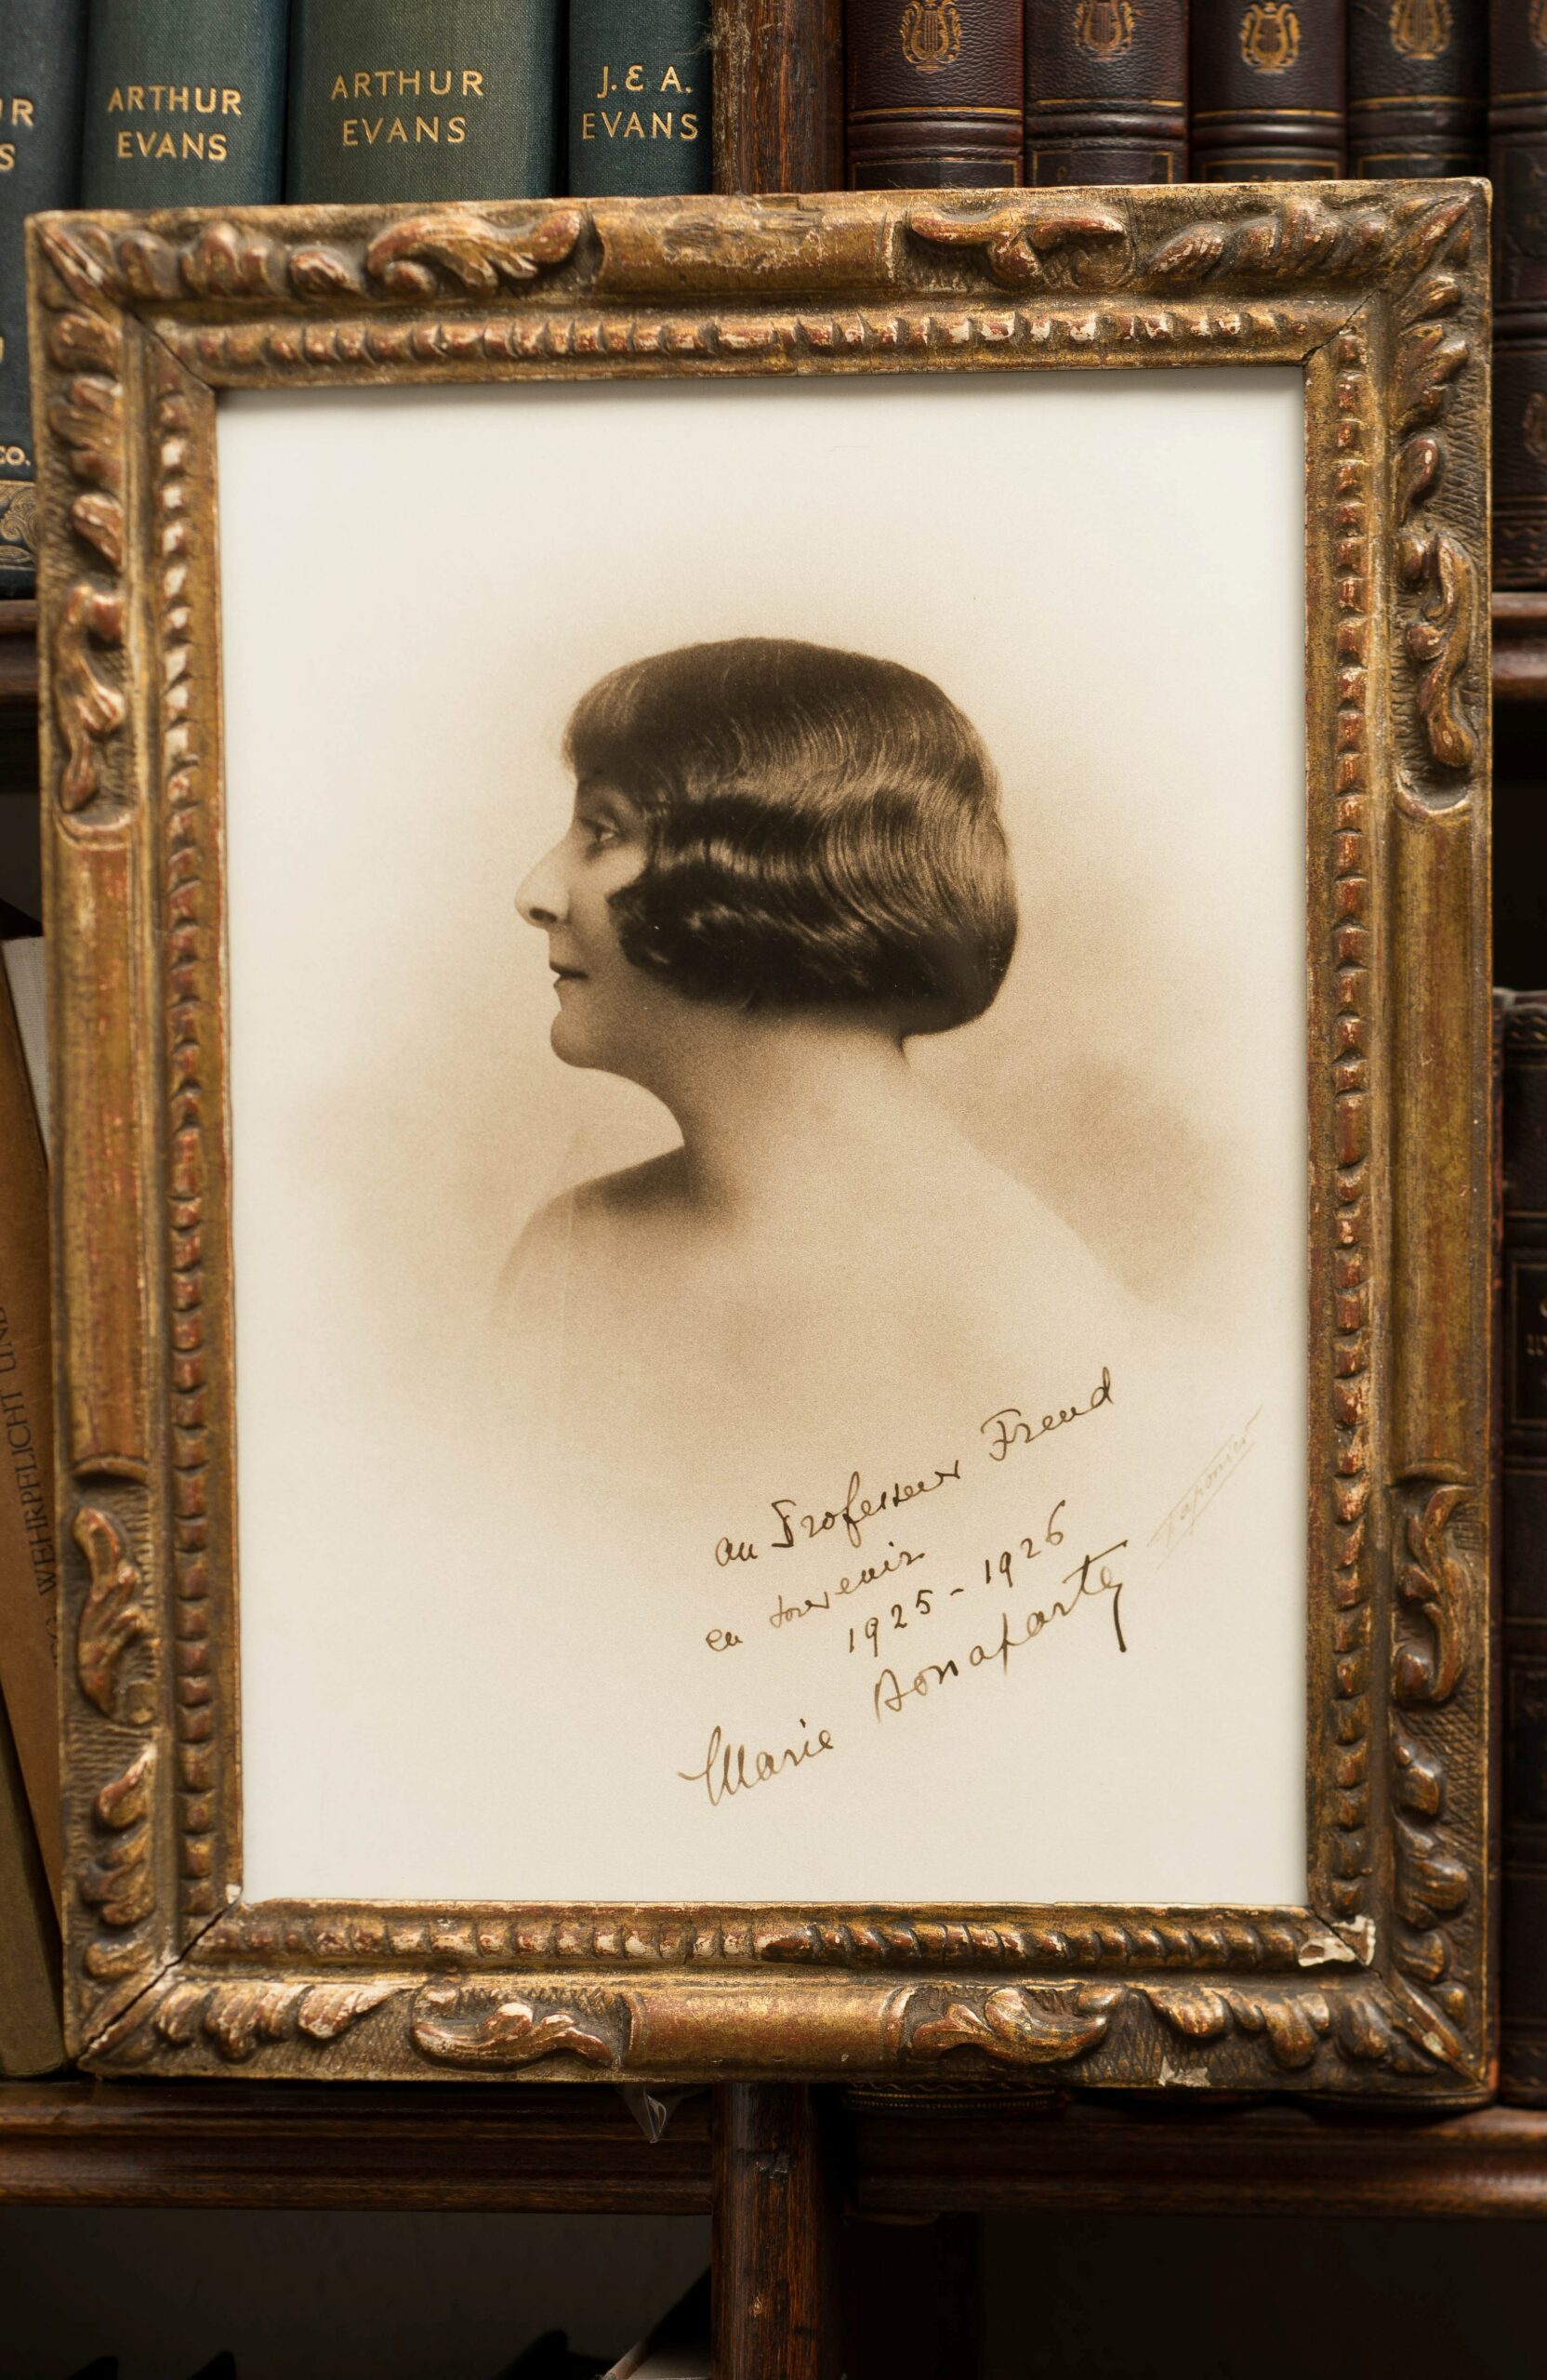 ARTHUR
EVANS
ARTHUR
EVANS
J. & A.
EVANS
UR
S
CO.
WEHRPFLICHT UND
au Professeur Freud
en souvenir
1925 - 1926
Marie Bonaparte
Taponier